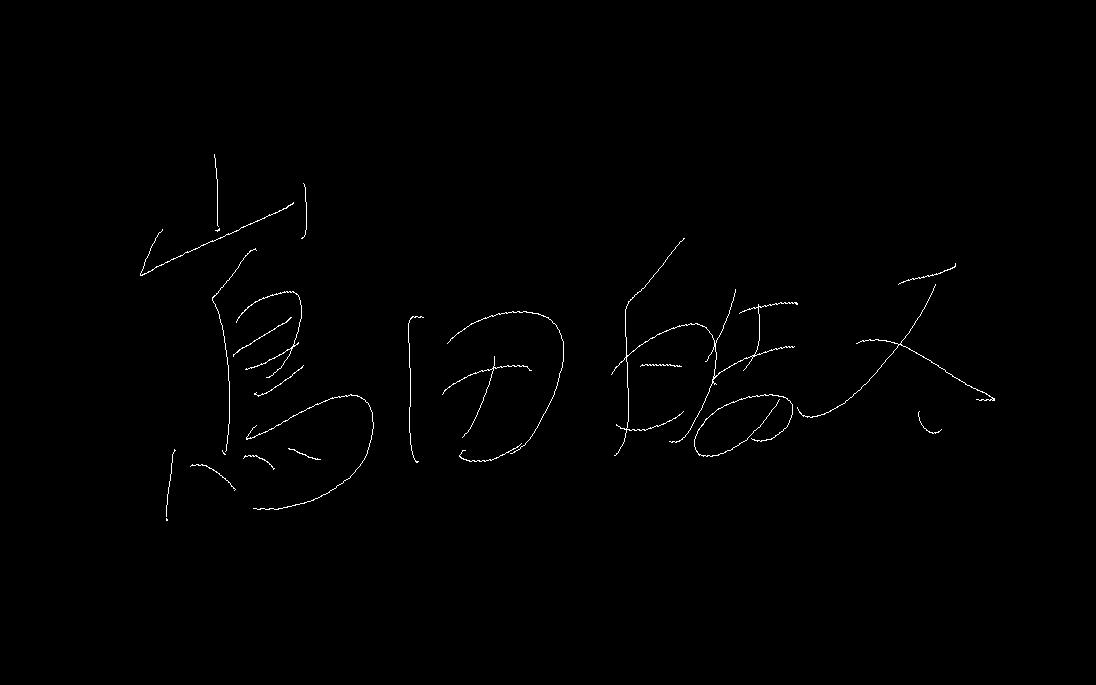 嶌田皓太